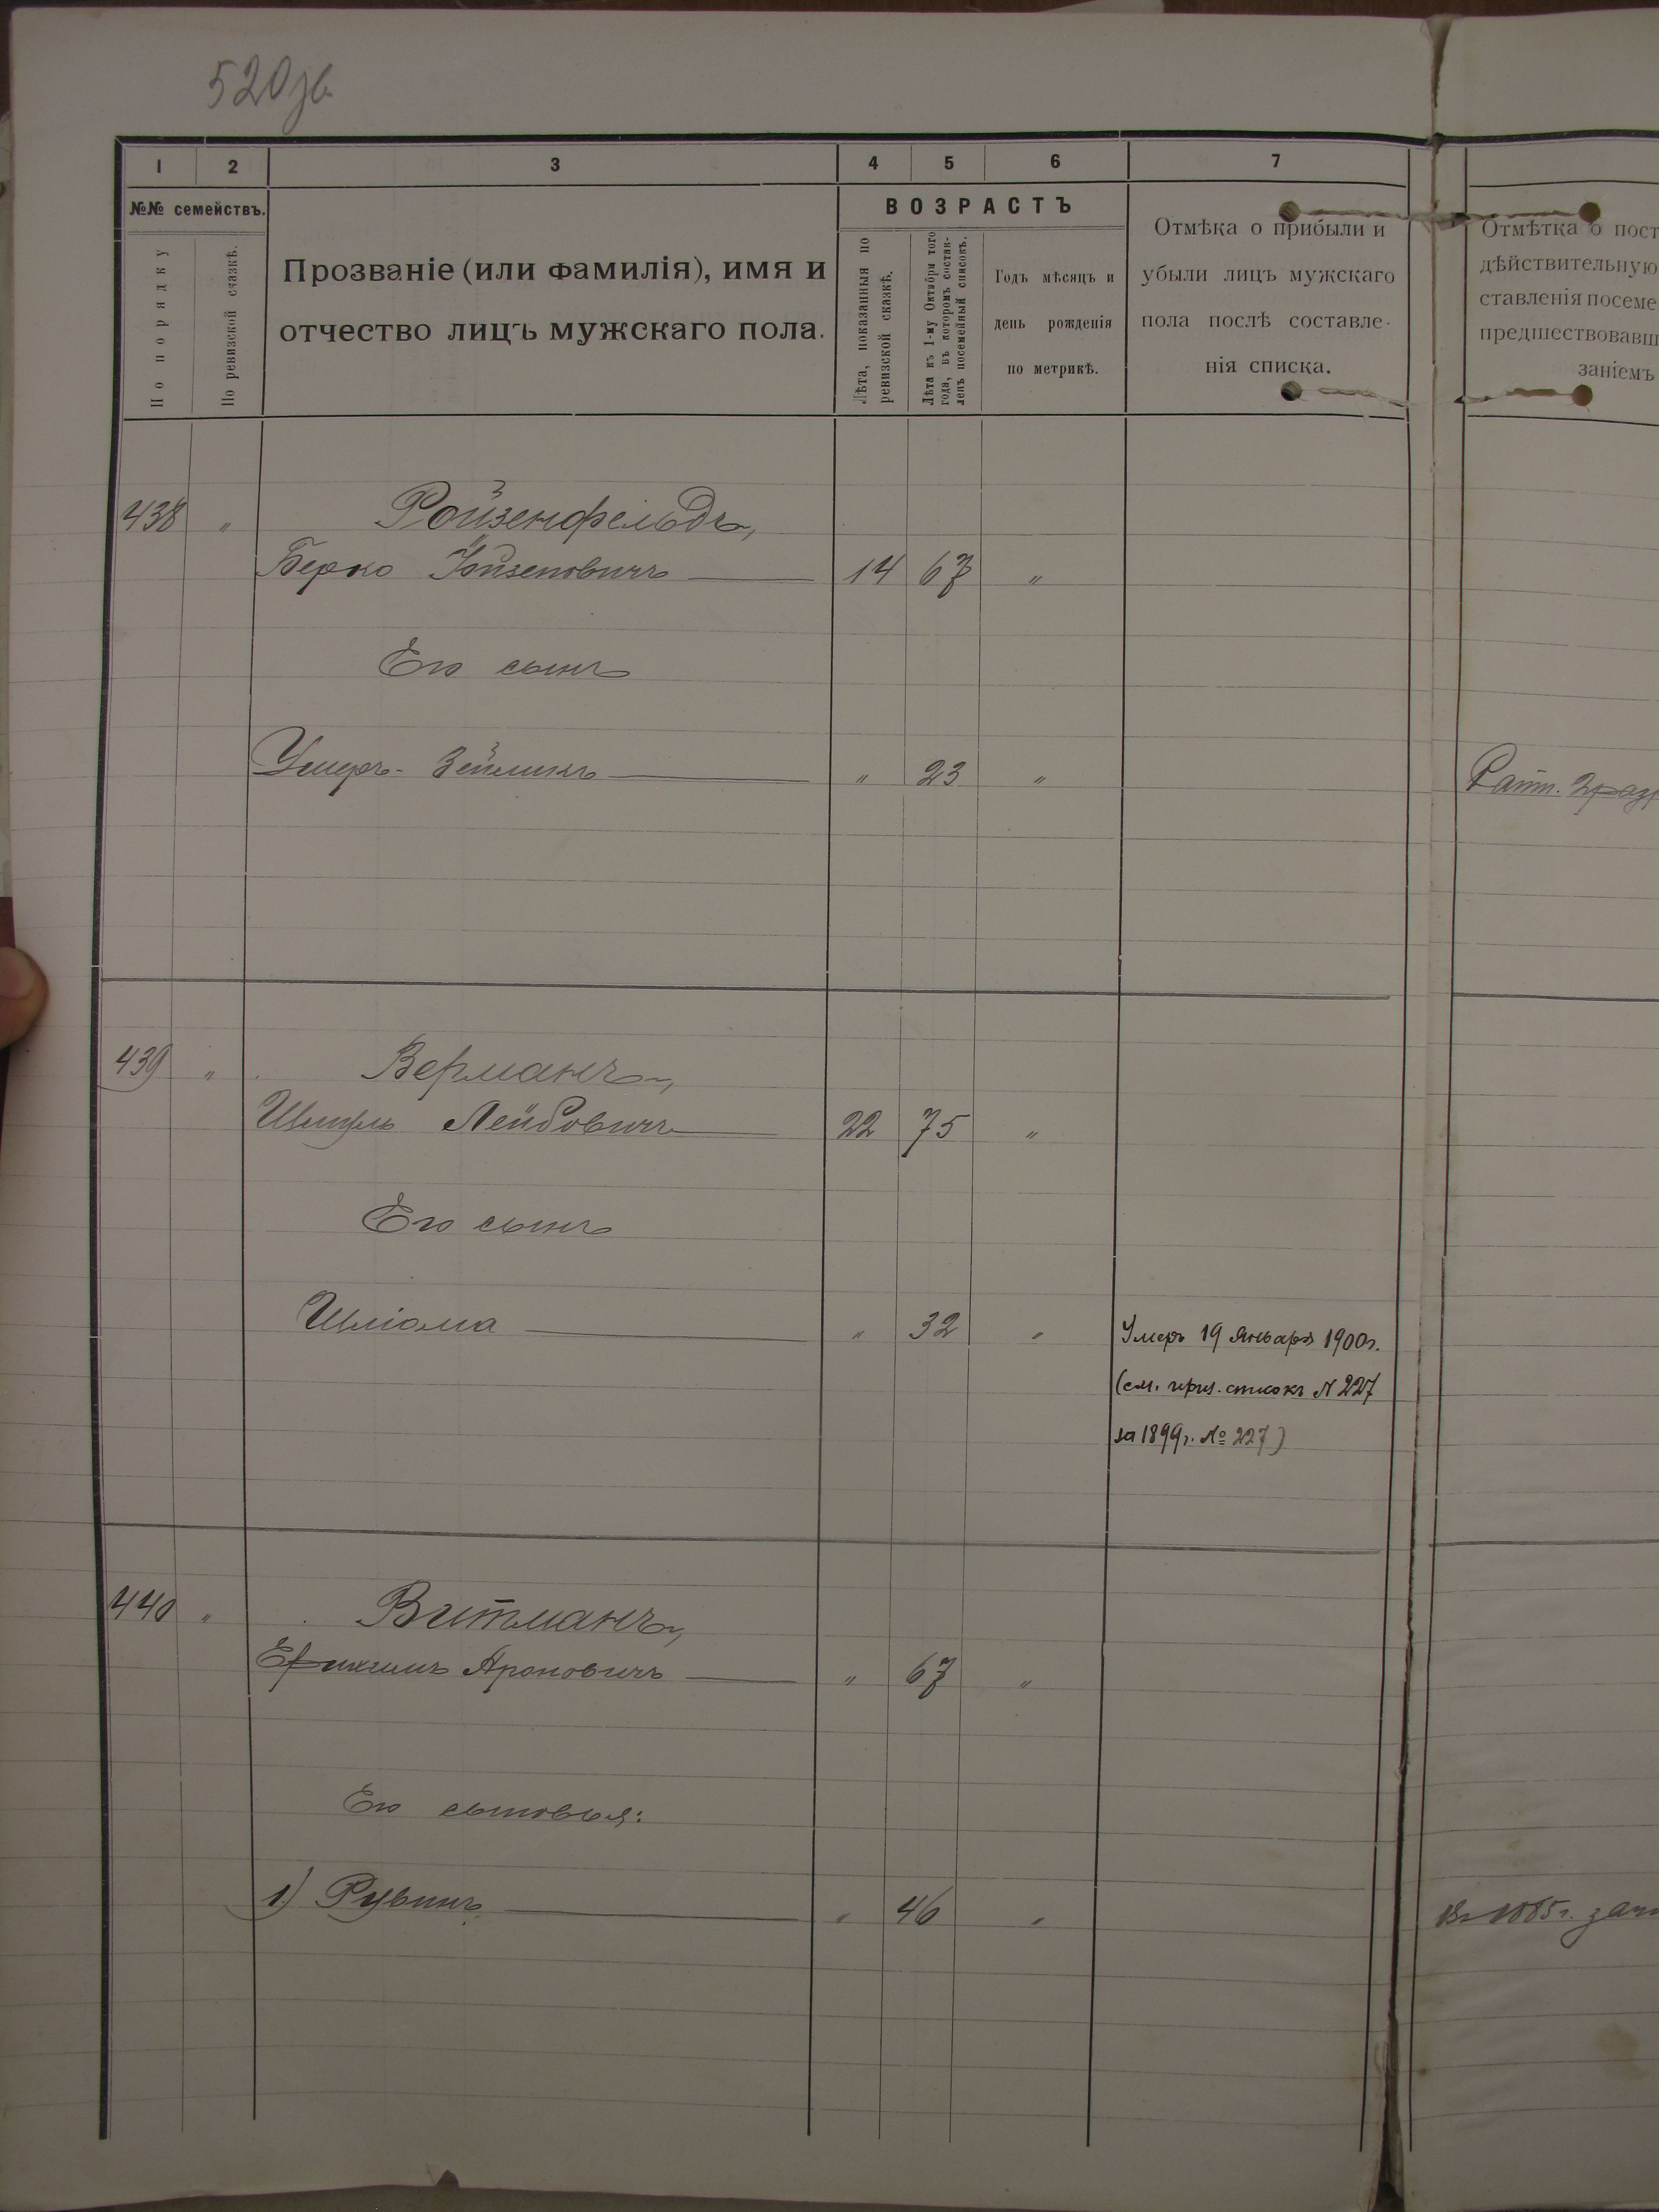 520 зв.
1 2 3 4 5 6 7
№№ семействъ.
По порядку
По ревизской сказкѣ.
Прозваніе (или фамилія), имя и
отчество лицъ мужскаго пола.
ВОЗРАСТЪ
Лѣта, показанныя по
ревизской сказкѣ.
Лѣта къ 1-му Октября того
года, въ которомъ состав-
ленъ посемейный списокъ.
Годъ мѣсяцъ и
день рожденія
по метрикѣ.
Отмѣка о прибыли и
убыли лицъ мужскаго
пола послѣ составле-
нія списка.
Отмѣтка о пост
дѣйствительную
ставленія посеме
предшествовавш
заніемъ
438 " Ройзенфельдъ,
Берко 14 67 "
Его сынъ
" 23 "
Ратн. 2 разр
439 " Верманъ,
Шмуль Лейбовичъ 22 75 "
Его сынъ
Шліома " 32 " Умеръ 19 Января 1900г.
(см. приз. списокъ № 227
за 1899г. № 227)
440 " Витманъ,
Ефихимъ Ароновичъ " 67 "
Его сыновья:
1) Рувинъ " 46 "
Въ 1885г. зачи